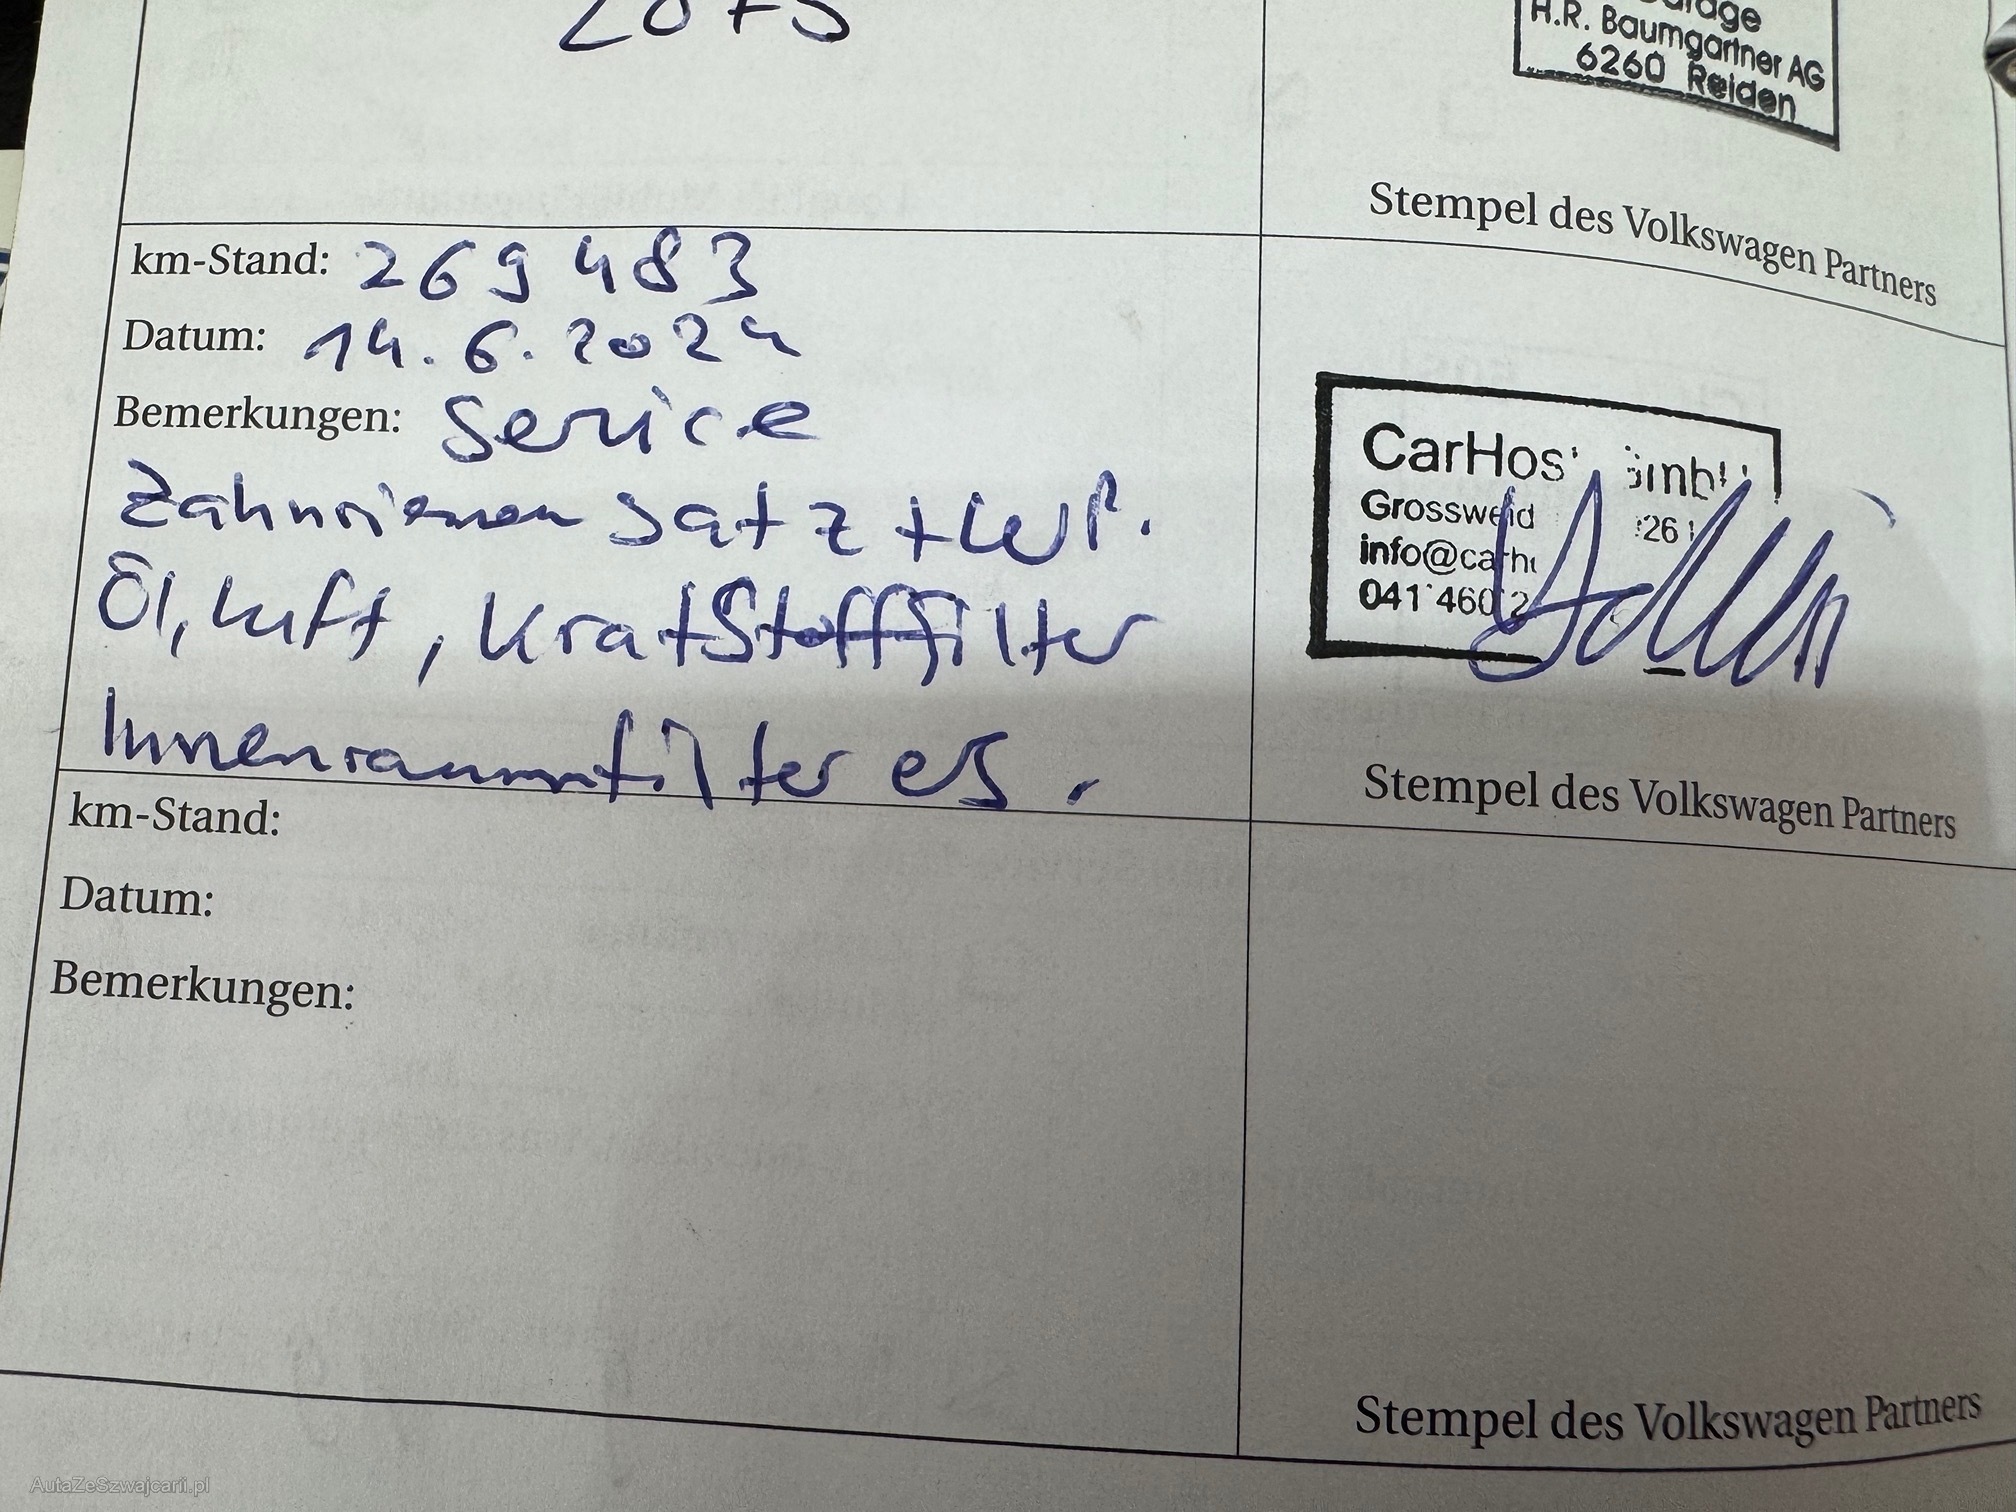 2075
Garage
H.R. Baumgartner AG
6260 Reiden
Stempel des Volkswagen Partners
km-Stand: 269 483
Datum: 14.6.2024
Bemerkungen: Service
Zahnriemen satz + WP.
Öl, Luft, Kratstofffilter
Innenraumfilter ers.
CarHos
Grossweid
info@carh
041 460 2
Stempel des Volkswagen Partners
km-Stand:
Datum:
Bemerkungen:
Stempel des Volkswagen Partners
AutaZeSzwajcarii.pl